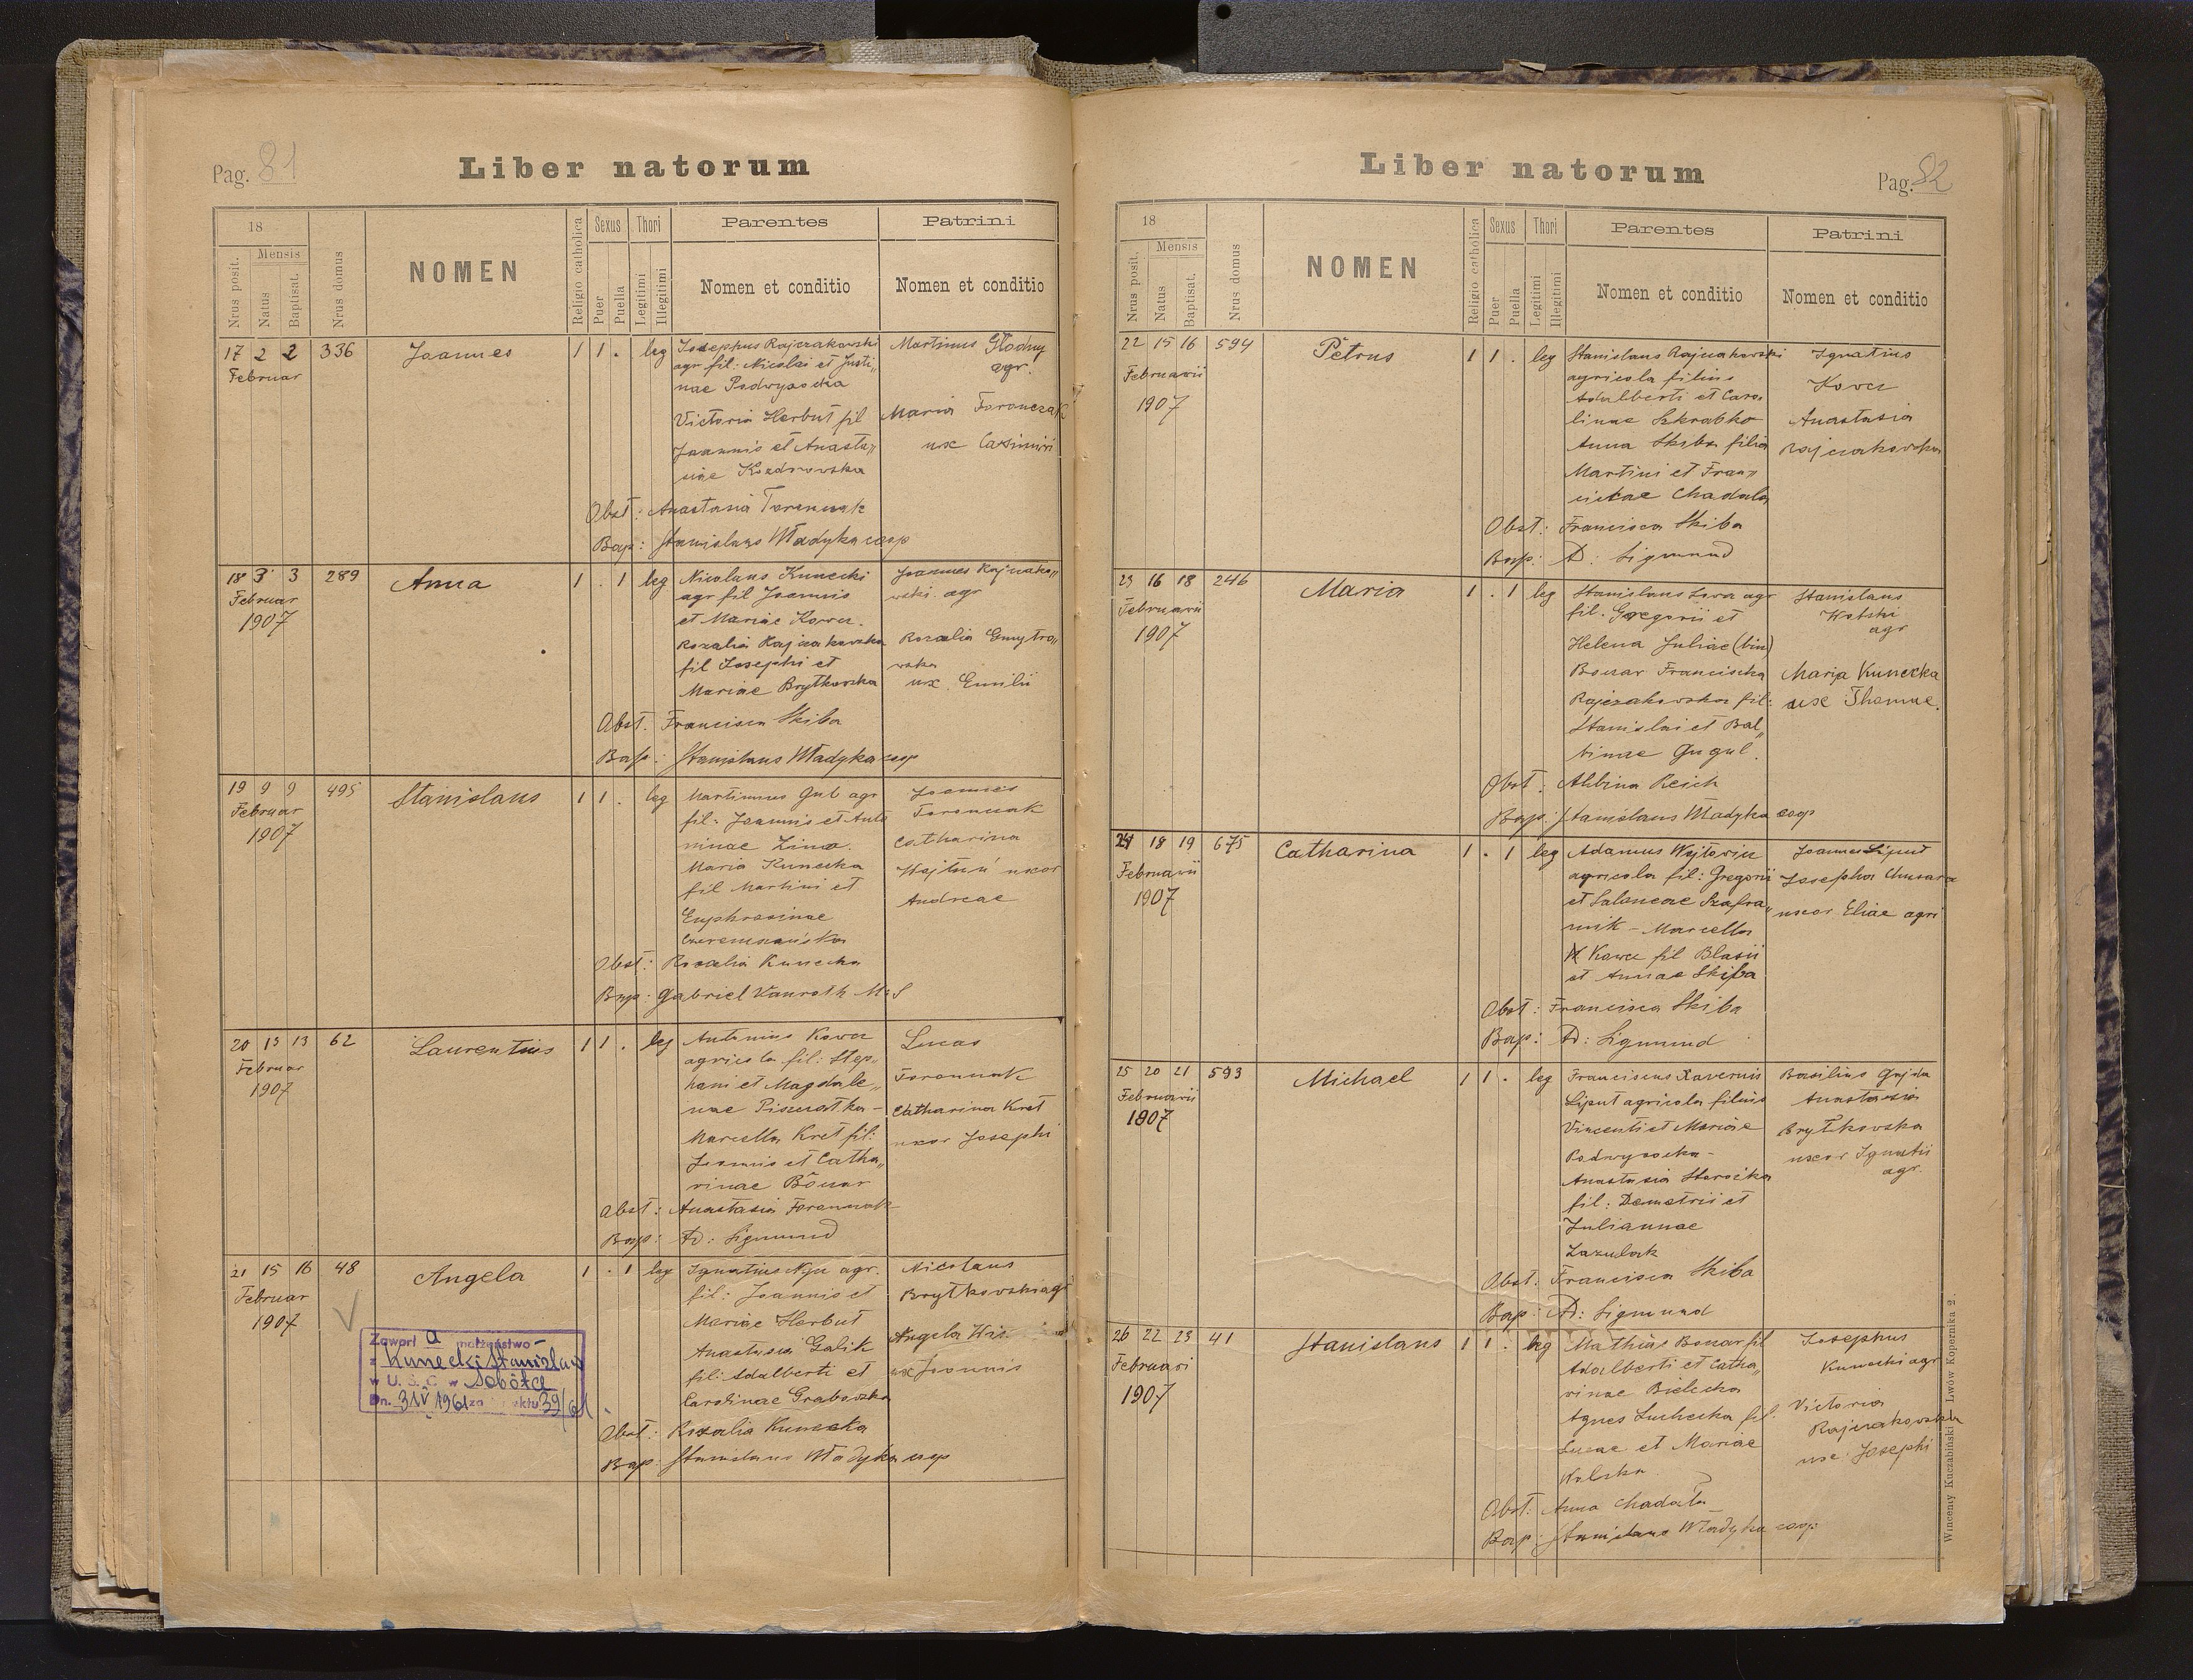 Pag. 81
Liber natorum
18
Mensis
Nrus posit.
Natus
Baptisat.
Nrus domus
NOMEN
Religio catholica
Sexus
Puer
Puella
Thori
Legitimi
Illegitimi
Parentes
Nomen et conditio
Patrini
Nomen et conditio
17 2 2 336
Februar
Joannes
1 1 . leg
Josephus Rajczakowski
agr fil: Nicolai et Justi„
nae Podwysocka
Victoria Herbut fil
Joannis et Anasta„
siae Kozdrowska
Martinus Głodny
agr.
Maria Taranczak
ux Casimiri
Obst: Anastasia Taranczak
Bap: Stanislaus Władyka coop
18 3 3 289
Februar
1907
Anna
1 . 1 leg
Nicolaus Kunecki
agr fil Joannis
et Mariae Kowcz.
Rozalia Rajczakowska
fil Josephi et
Mariae Brytkowska
Joannes Rajczako„
wski agr
Rozalia Gmytro„
wska
ux. Emilii
Obst. Francisca Skiba
Bap: Stanislaus Władyka coop
19 9 9 495
Februar
1907
Stanislaus
1 1 . leg
Martinus Gul agr
fil: Joannis et Anto
ninae Zima.
Maria Kunecka
fil Martini et
Euphrosinae
Joannes
Taranczak
Catharina
uxor
Andreae
Obst: Rozalia Kunecka
Bap: Gabriel Vanroth M:S
20 13 13 62
Februar
1907
Laurentius
1 1 . leg
Antonius Kowcz
agricola fil: Step„
hani et Magdale„
nae
Marcella Kret fil:
Joannis et Catha„
rinae Bonar
Lucas
Taranczak
Catharina Kret
uxor Josephi
Obst: Anastasia Taranczak
Bap: Ad: Sigmund
21 15 16 48
Februar
1907
Angela
1 . 1 leg
Ignatius agr.
fil: Joannis et
Mariae Herbut
Anastasia Galik
fil: Adalberti et
Carolinae Grabowska
Nicolaus
Brytkowski agr
Angela
ux Joannis
Obst: Rozalia Kunecka
Bap: Stanislaus Władyka coop
Zawarł a małżeństwo
z Kunecki Stanisław
w U. S. C. w Sobótce
Dn. 31 V 1961 za aktu 39/61
Liber natorum
Pag. 82
18
Mensis
Nrus posit.
Natus
Baptisat.
Nrus domus
NOMEN
Religio catholica
Sexus
Puer
Puella
Thori
Legitimi
Illegitimi
Parentes
Nomen et conditio
Patrini
Nomen et conditio
22 15 16 594
Februarii
1907
Petrus
1 1 . leg
Stanislaus Rajczakowski
agricola filius
Adalberti et Caro
linae Szkrabko
Anna Skiba filia
Martini et Fran„
ciscae Chadała
Ignatius
Kowcz
Anastasia
Rajczakowska
Obst: Francisca Skiba
Bap: Ad: Sigmund
23 16 18 246
Februarii
1907
Maria
1 . 1 leg
Stanislaus agr
fil. Gregorii et
Helena Juliae (bin)
Bonar Francischa
Rajczakowska fil:
Stanislai et Bal„
binae Gugul.
Stanislaus
agr
Maria Kunecka
ux Thomae.
Obst: Albina Reich
Bap: Stanislaus Władyka coop
24 18 19 675
Februarii
1907
Catharina
1 . 1 leg
Adamus Wojtowicz
agricola fil: Gregorii
et Salomeae Szafra„
nik - Marcella
Kowcz fil Blasii
et Annae Skiba
Joannes Liput
Josepha
uxor Eliae agri
Obst: Francisca Skiba
Bap: Ad: Sigmund
25 20 21 593
Februarii
1907
Michael
1 1 . leg
Franciscus Xaverius
Liput agricola filius
Vincenti et Mariae
Podwysocka -
Anastasia Starocka
fil: Demetrii et
Juliannae
Lazulak
Basilius Gajda
Anastasia
Brytkowska
uxor Ignatii
agr.
Obst: Francisca Skiba
Bap: Ad: Sigmund
26 22 23 41
Februari
1907
Stanislaus
1 1 . leg
Mathias Bonar fil
Adalberti et Catha„
rinae Bielecka
Agnes Luchecka fil.
Lucae et Mariae
Wolska
Josephus
Kunecki agr
Victoria
Rajczakowska
ux: Josephi
Obst: Anna Chadała
Bap: Stanislaus Władyka coop:
Wincenty Kuczabiński, Lwów Kopernika 2.